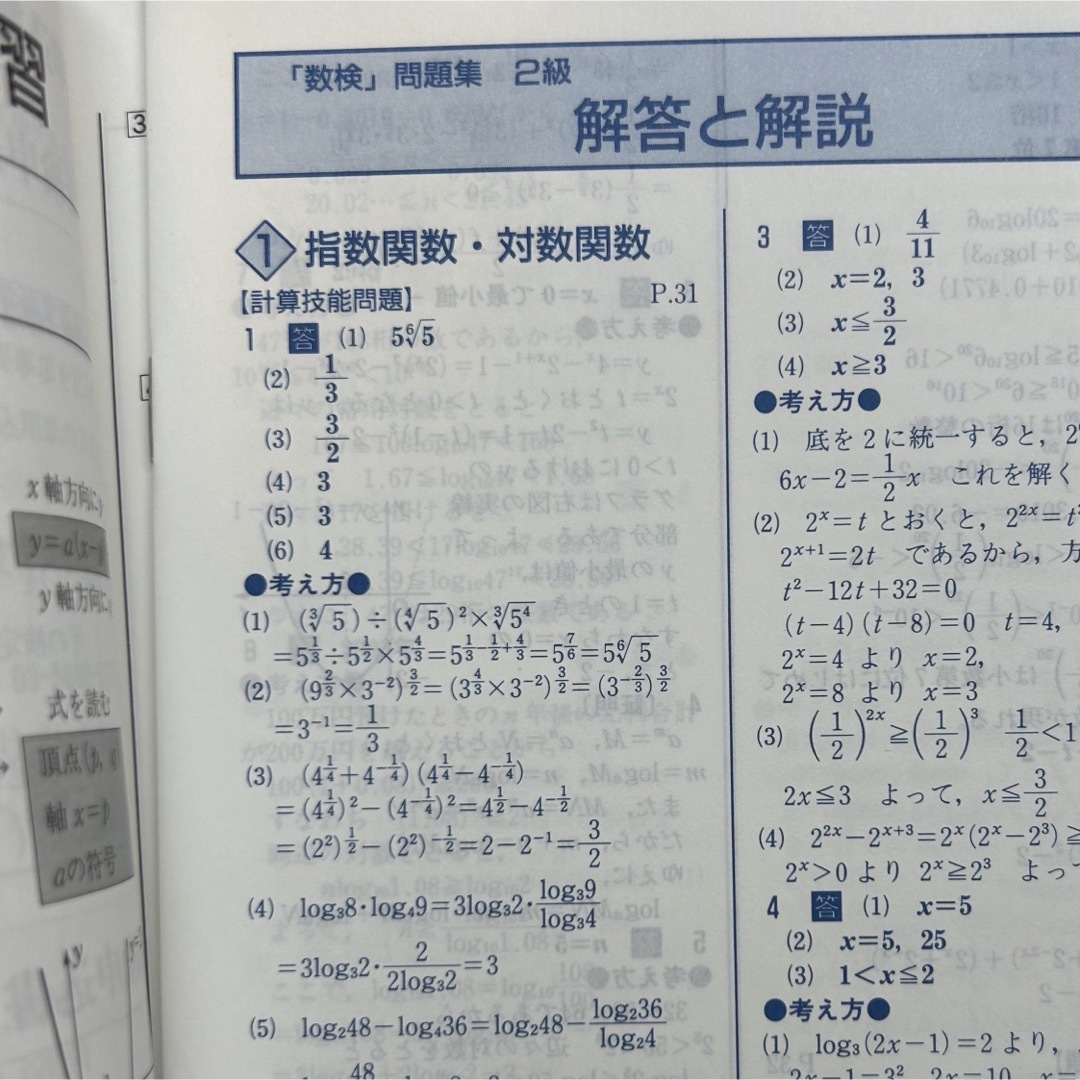 習
3
x軸方向に
y=a(x-
y軸方向に
式を読む
頂点(p,
軸x=p
aの符号
y
「数検」問題集 2級
解答と解説
1 指数関数・対数関数
【計算技能問題】 P.31
1 答 (1) 5⁶√5
(2) 1/3
(3) 3/2
(4) 3
(5) 3
(6) 4
●考え方●
(1) (³√5)÷(⁴√5)²×³√5⁴
=5^{1/3}÷5^{1/2}×5^{4/3}=5^{1/3-1/2+4/3}=5^{7/6}=5⁶√5
(2) (9^{2/3}×3^{-2})^{3/2}=(3^{4/3}×3^{-2})^{3/2}=(3^{-2/3})^{3/2}
=3^{-1}=1/3
(3) (4^{1/4}+4^{-1/4})(4^{1/4}-4^{-1/4})
=(4^{1/4})²-(4^{-1/4})²=4^{1/2}-4^{-1/2}
=(2²)^{1/2}-(2²)^{-1/2}=2-2^{-1}=3/2
(4) log₃8・log₄9=3log₃2・log₃9/log₃4
=3log₃2・2/2log₃2=3
(5) log₂48-log₄36=log₂48-log₂36/log₂4
48
3 答 (1) 4/11
(2) x=2, 3
(3) x≦3/2
(4) x≧3
●考え方●
(1) 底を2に統一すると,
6x-2=1/2x これを解く
(2) 2^x=tとおくと, 2^{2x}=t²
2^{x+1}=2t であるから, 方
t²-12t+32=0
(t-4)(t-8)=0 t=4,
2^x=4 より x=2,
2^x=8 より x=3
(3) (1/2)^{2x}≧(1/2)^3 1/2<1
2x≦3 よって, x≦3/2
(4) 2^{2x}-2^{x+3}=2^x(2^x-2³)≧
2^x>0より 2^x≧2³ よっ
4 答 (1) x=5
(2) x=5, 25
(3) 1<x≦2
●考え方●
(1) log₃(2x-1)=2より,
2x-1=3², 2x=10, x